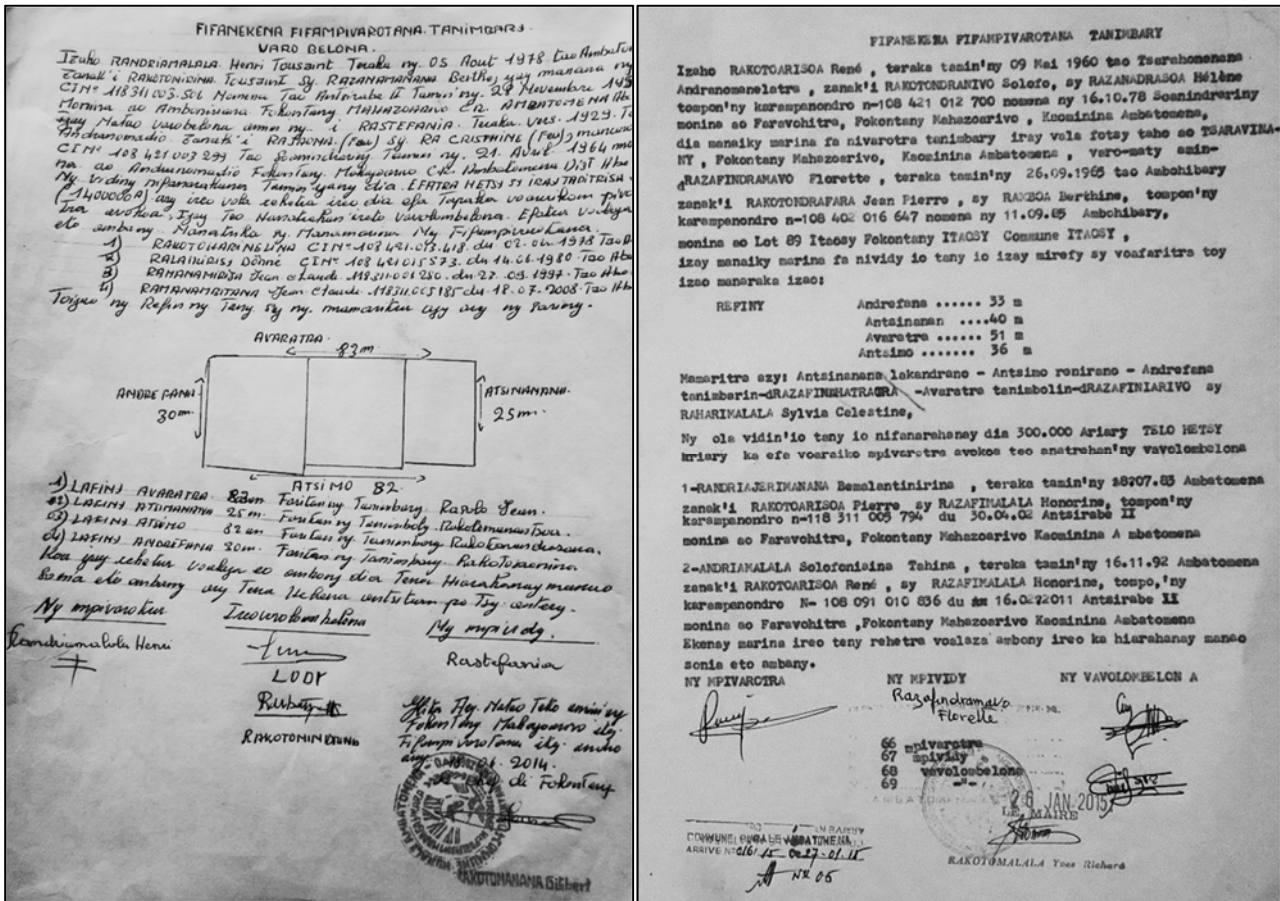 FIFANEKENA FIFAMPIVAROTANA TANIMBARY.
VARO BELONA.
Izaho RANDRIAMALALA Henri Toussaint Teraka ny 05 Aout 1978 tao
Zanak'i RAKOTONIRINA Toussaint Sy RAZANAMANANA Berthe, izay manana ny
CIN° 118311 003.506 Nomena Tao Antsirabe II Tamin'ny 29 Novembre
Monina ao Ambonivisiana Fokontany MAHAZOARIVO CR. AMBATOMENA
izay Natao varobelona amin ny i RASTEFANIA. Teraka Vers 1929.
Andranomadio Zanak'i RAJAONA (Feu) Sy RA CRISTHINE (Feu)
CIN° 108 421 003 299 Tao Soanindrariny Tamin ny 21 Avril 1964
ao Andranomadio Fokontany Mahazoarivo CR. Ambatomena Dist
Ny vidiny nifanarahana Tamin'izany dia EFATRA HETSY SY IRAY TAPITRISA
(1400000A) ary ireo vola rehetra ireo dia efa
eto ambany. ny Fifampivarotana
1) CIN° 108 421.013.418 du 02.04.1978
2) Donné CIN° 108421015573 du 14.06.1980 Tao
3) RAMANAMIRIJA Jean claude 118311001250 du 22.09.1997 Tao
4) RAMANAMBITANA Jean claude 118311.005185 du 18.07.2008 Tao
ny Refin ny Tany sy ny mamaritra azy ary ny sariny.
AVARATRA
83m
ANDREFANA
30m
ATSINANANA
25m
ATSIMO 82
1) LAFINY AVARATRA 83m Faritan'ny Tanimbary Rasolo Jean.
2) LAFINY ATSINANANA 25m Faritan'ny Tanimboly Rakotomanantsoa.
3) LAFINY ATSIMO 82m Faritan ny Tanimbary
4) LAFINY ANDREFANA 30m Faritan'ny Tanimbary Rakotomonina
Koa izay rehetra voalaza eo ambony dia Tena Hiarahanay manao
Sonia eto ambany ary Tena Nekena antsitrapo Tsy antery.
Ny mpivarotra
Ireo vavolombelona
Ny mpividy.
Randriamalala Henri
LODY
Rastefania
Hita Ary Natao Teto amin'ny
Fokontany Mahazoarivo
Fifampivarotana
06.2014.
Fokontany
RAKOTOMANANA Gilbert
FIFANEKENA FIFAMPIVAROTANA TANIMBARY
Izaho RAKOTOARISOA René , teraka tamin'ny 09 Mai 1960 tao Tsarahonenana
Andranomanelatra , zanak'i RAKOTONDRANIVO Solofo, sy RAZANADRASOA Hélène
tompon'ny karampanondro n-108 421 012 700 nomena ny 16.10.78 Soanindrariny
monina ao Faravohitra, Fokontany Mahazoarivo , Kaominina Ambatomena,
dia manaiky marina fa nivarotra tanimbary iray vala fotsy taho ao TSARAVINA-
NY , Fokontany Mahazoarivo, Kaominina Ambatomena , varo-maty amin-
dRAZAFINDRAMAVO Florette , teraka tamin'ny 26.09.1965 tao Ambohibary
zanak'i RAKOTONDRAFARA Jean Pierre , sy RAXBOA Berthine, tompon'ny
karampanondro n-108 402 016 647 nomena ny 11.09.85 Ambohibary,
monina ao Lot 89 Itaosy Fokontany ITAOSY Commune ITAOSY ,
izay manaiky marina fa nividy io tany io izay mirefy sy voafaritra toy
izao manaraka izao:
REFINY Andrefana ...... 33 m
Antsinanan ....40 m
Avaratra ...... 51 m
Antsimo ....... 36 m
Mamaritra azy: Antsinanana lakandrano - Antsimo renirano - Andrefana
-Avaratra tanimbolin-dRAZAFINIARIVO sy
RAHARIMALALA Sylvia Celestine,
Ny ola vidin'io tany io nifanarahanay dia 300.000 Ariary TELO HETSY
Ariary ka efa voaraiko mpivarotra avokoa teo anatrehan'ny vavolombelona
1-RANDRIAJERIMANANA Bemalantinirina , teraka tamin'ny 28907.83 Ambatomena
zanak'i RAKOTOARISOA Pierre sy RAZAFIMALALA Honorine, tompon'ny
karampanondro n-118 311 005 794 du 30.04.02 Antsirabe II
monina ao Faravohitra, Fokontany Mahazoarivo Kaominina A mbatomena
2-ANDRIAMALALA Solofoniaina Tahina , teraka tamin'ny 16.11.92 Ambatomena
zanak'i RAKOTOARISOA René , sy RAZAFIMALALA Honorine, tompo,'ny
karampanondro N- 108 091 010 836 du 16.0272011 Antsirabe II
monina ao Faravohitra ,Fokontany Mahazoarivo Kaominina Ambatomena
Ekenay marina ireo teny rehetra voalaza ambony ireo ka hiarahanay manao
sonia eto ambany.
NY MPIVAROTRA NY MPIVIDY NY VAVOLOMBELON A
Razafindramavo
Florette
66 mpivarotra
67 mpividy
68 vavolombelona
69 -"-
26 JAN 2015
LE MAIRE
COMMUNE RURALE AMBATOMENA
ARRIVE N° 0161/15 27-01-15
NR 05
RAKOTOMALALA Yves Richard